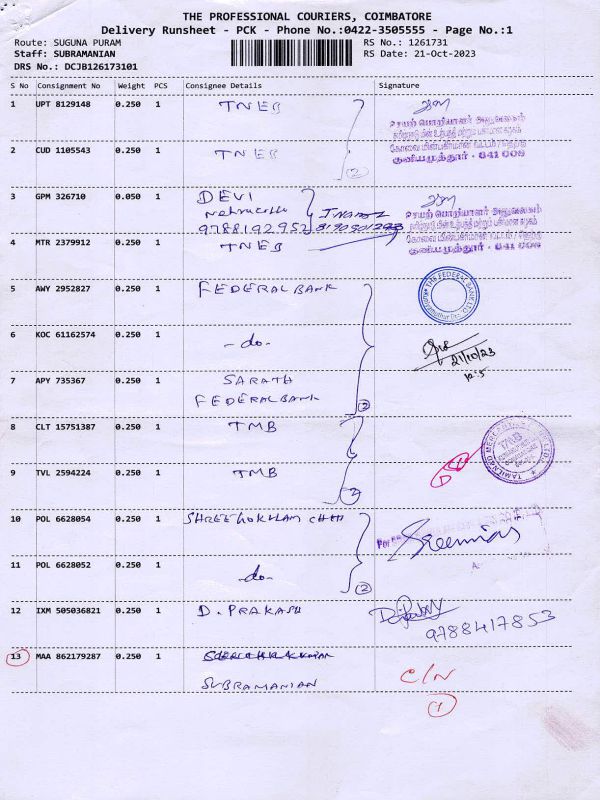 THE PROFESSIONAL COURIERS, COIMBATORE
Delivery Runsheet - PCK - Phone No.:0422-3505555 - Page No.:1
Route: SUGUNA PURAM
RS No.: 1261731
Staff: SUBRAMANIAN
RS Date: 21-Oct-2023
DRS No.: DCJB126173101
S No Consignment No Weight PCS Consignee Details Signature
1 UPT 8129148 0.250 1 TNEB
உதவி பொறியாளர் அலுவலகம்
தமிழ்நாடு மின் உற்பத்தி மற்றும் பகிர்மான கழகம்
குனியமுத்தூர் - 641 008
2 CUD 1105543 0.250 1 TNEB
2
3 GPM 326710 0.050 1 DEVI
9788192952
4 MTR 2379912 0.250 1 TNEB
உதவி பொறியாளர் அலுவலகம்
தமிழ்நாடு மின் உற்பத்தி மற்றும் பகிர்மான கழகம்
குனியமுத்தூர் - 641 008
5 AWY 2952827 0.250 1 FEDERAL BANK
THE FEDERAL BANK LTD.
6 KOC 61162574 0.250 1 -do-
21/10/23
7 APY 735367 0.250 1 SARATH
FEDERAL BANK
2
8 CLT 15751387 0.250 1 TMB
TAMILNAD MERCANTILE BANK LTD.
TMB
9 TVL 2594224 0.250 1 TMB
2
10 POL 6628054 0.250 1 SHREE GOKULAM CHIT
For
Sreenivas
11 POL 6628052 0.250 1 -do-
2
12 IXM 505036821 0.250 1 D. PRAKASH
9788417853
13 MAA 862179287 0.250 1
SUBRAMANIAN
C/N
1